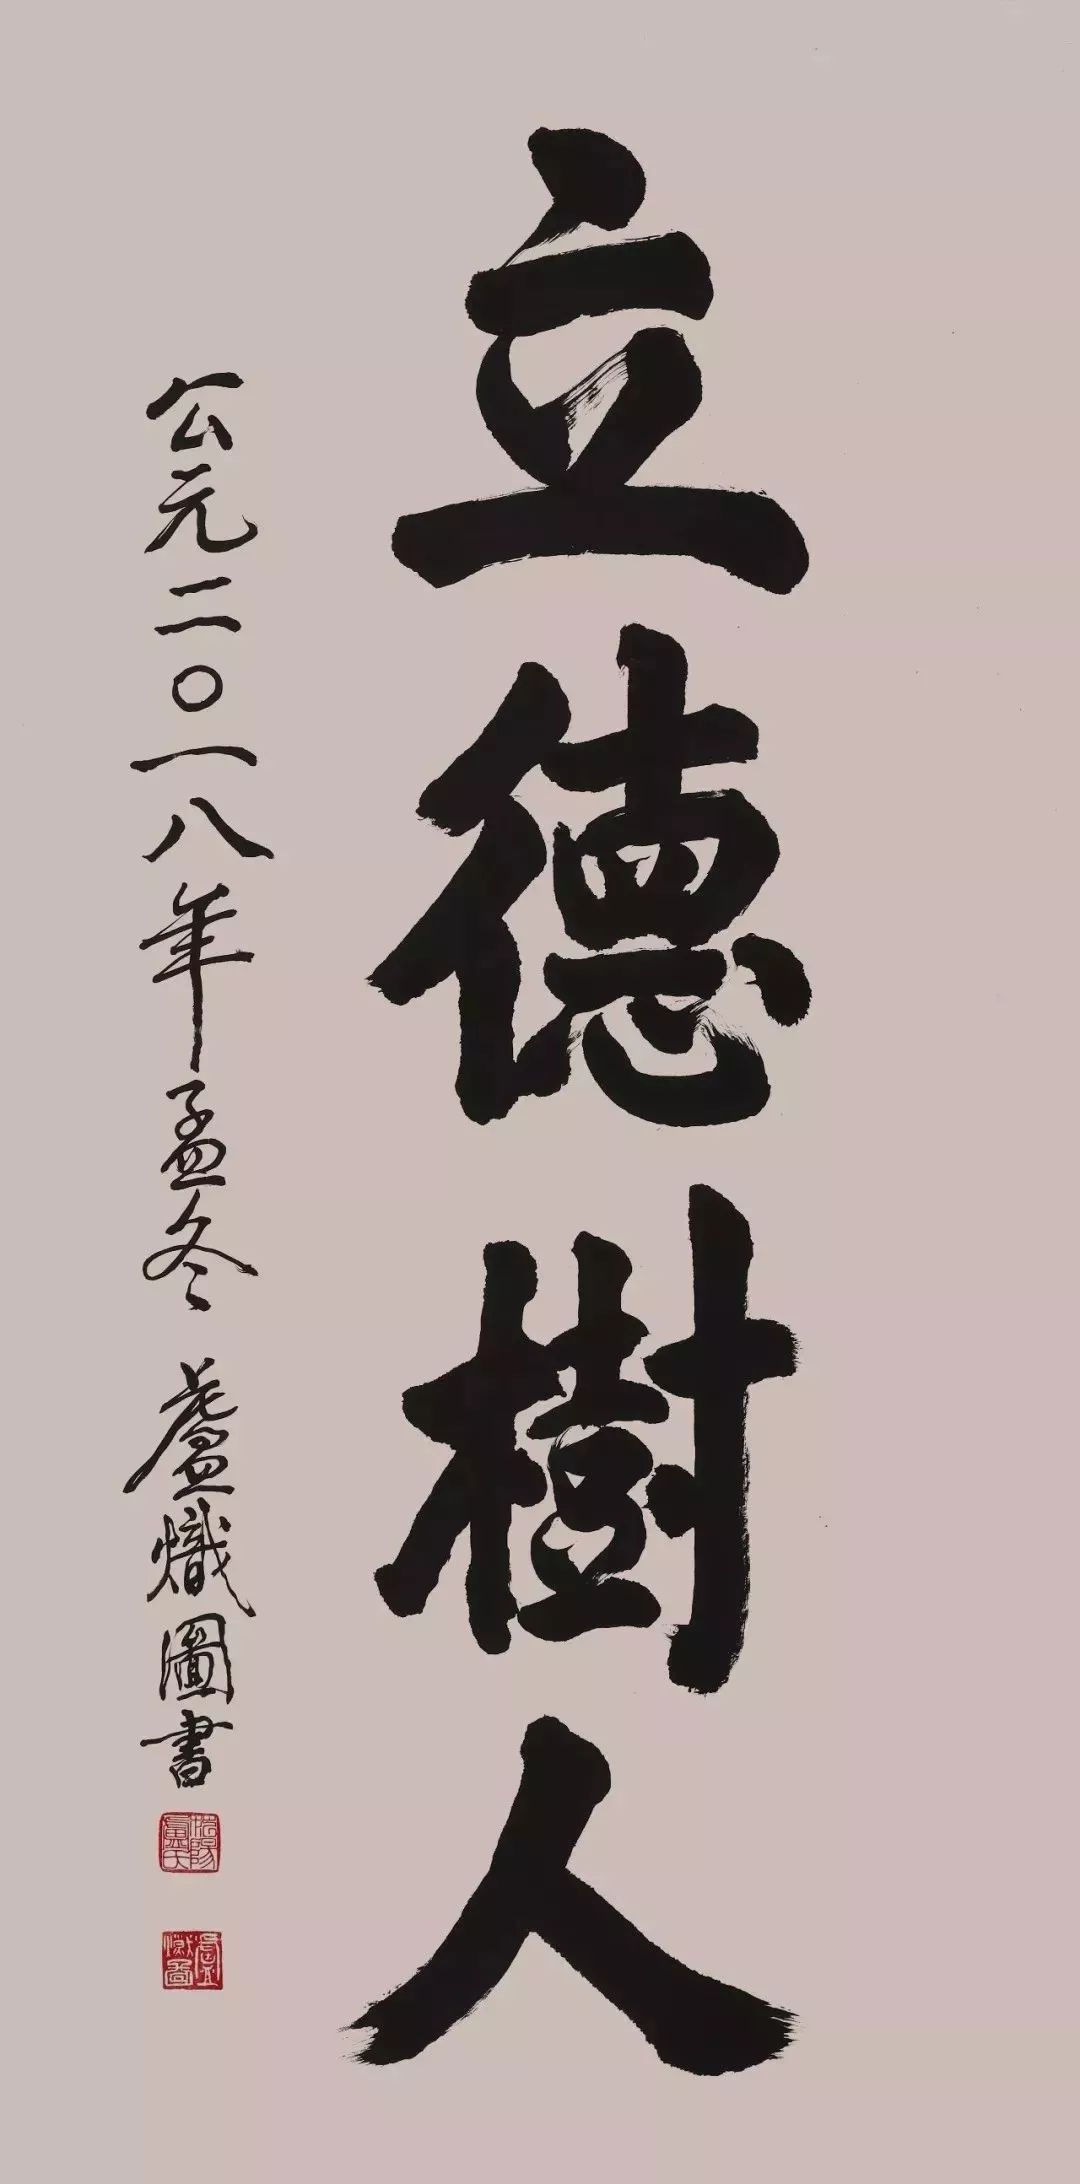 立德樹人
公元二〇一八年孟冬 盧熾圖書